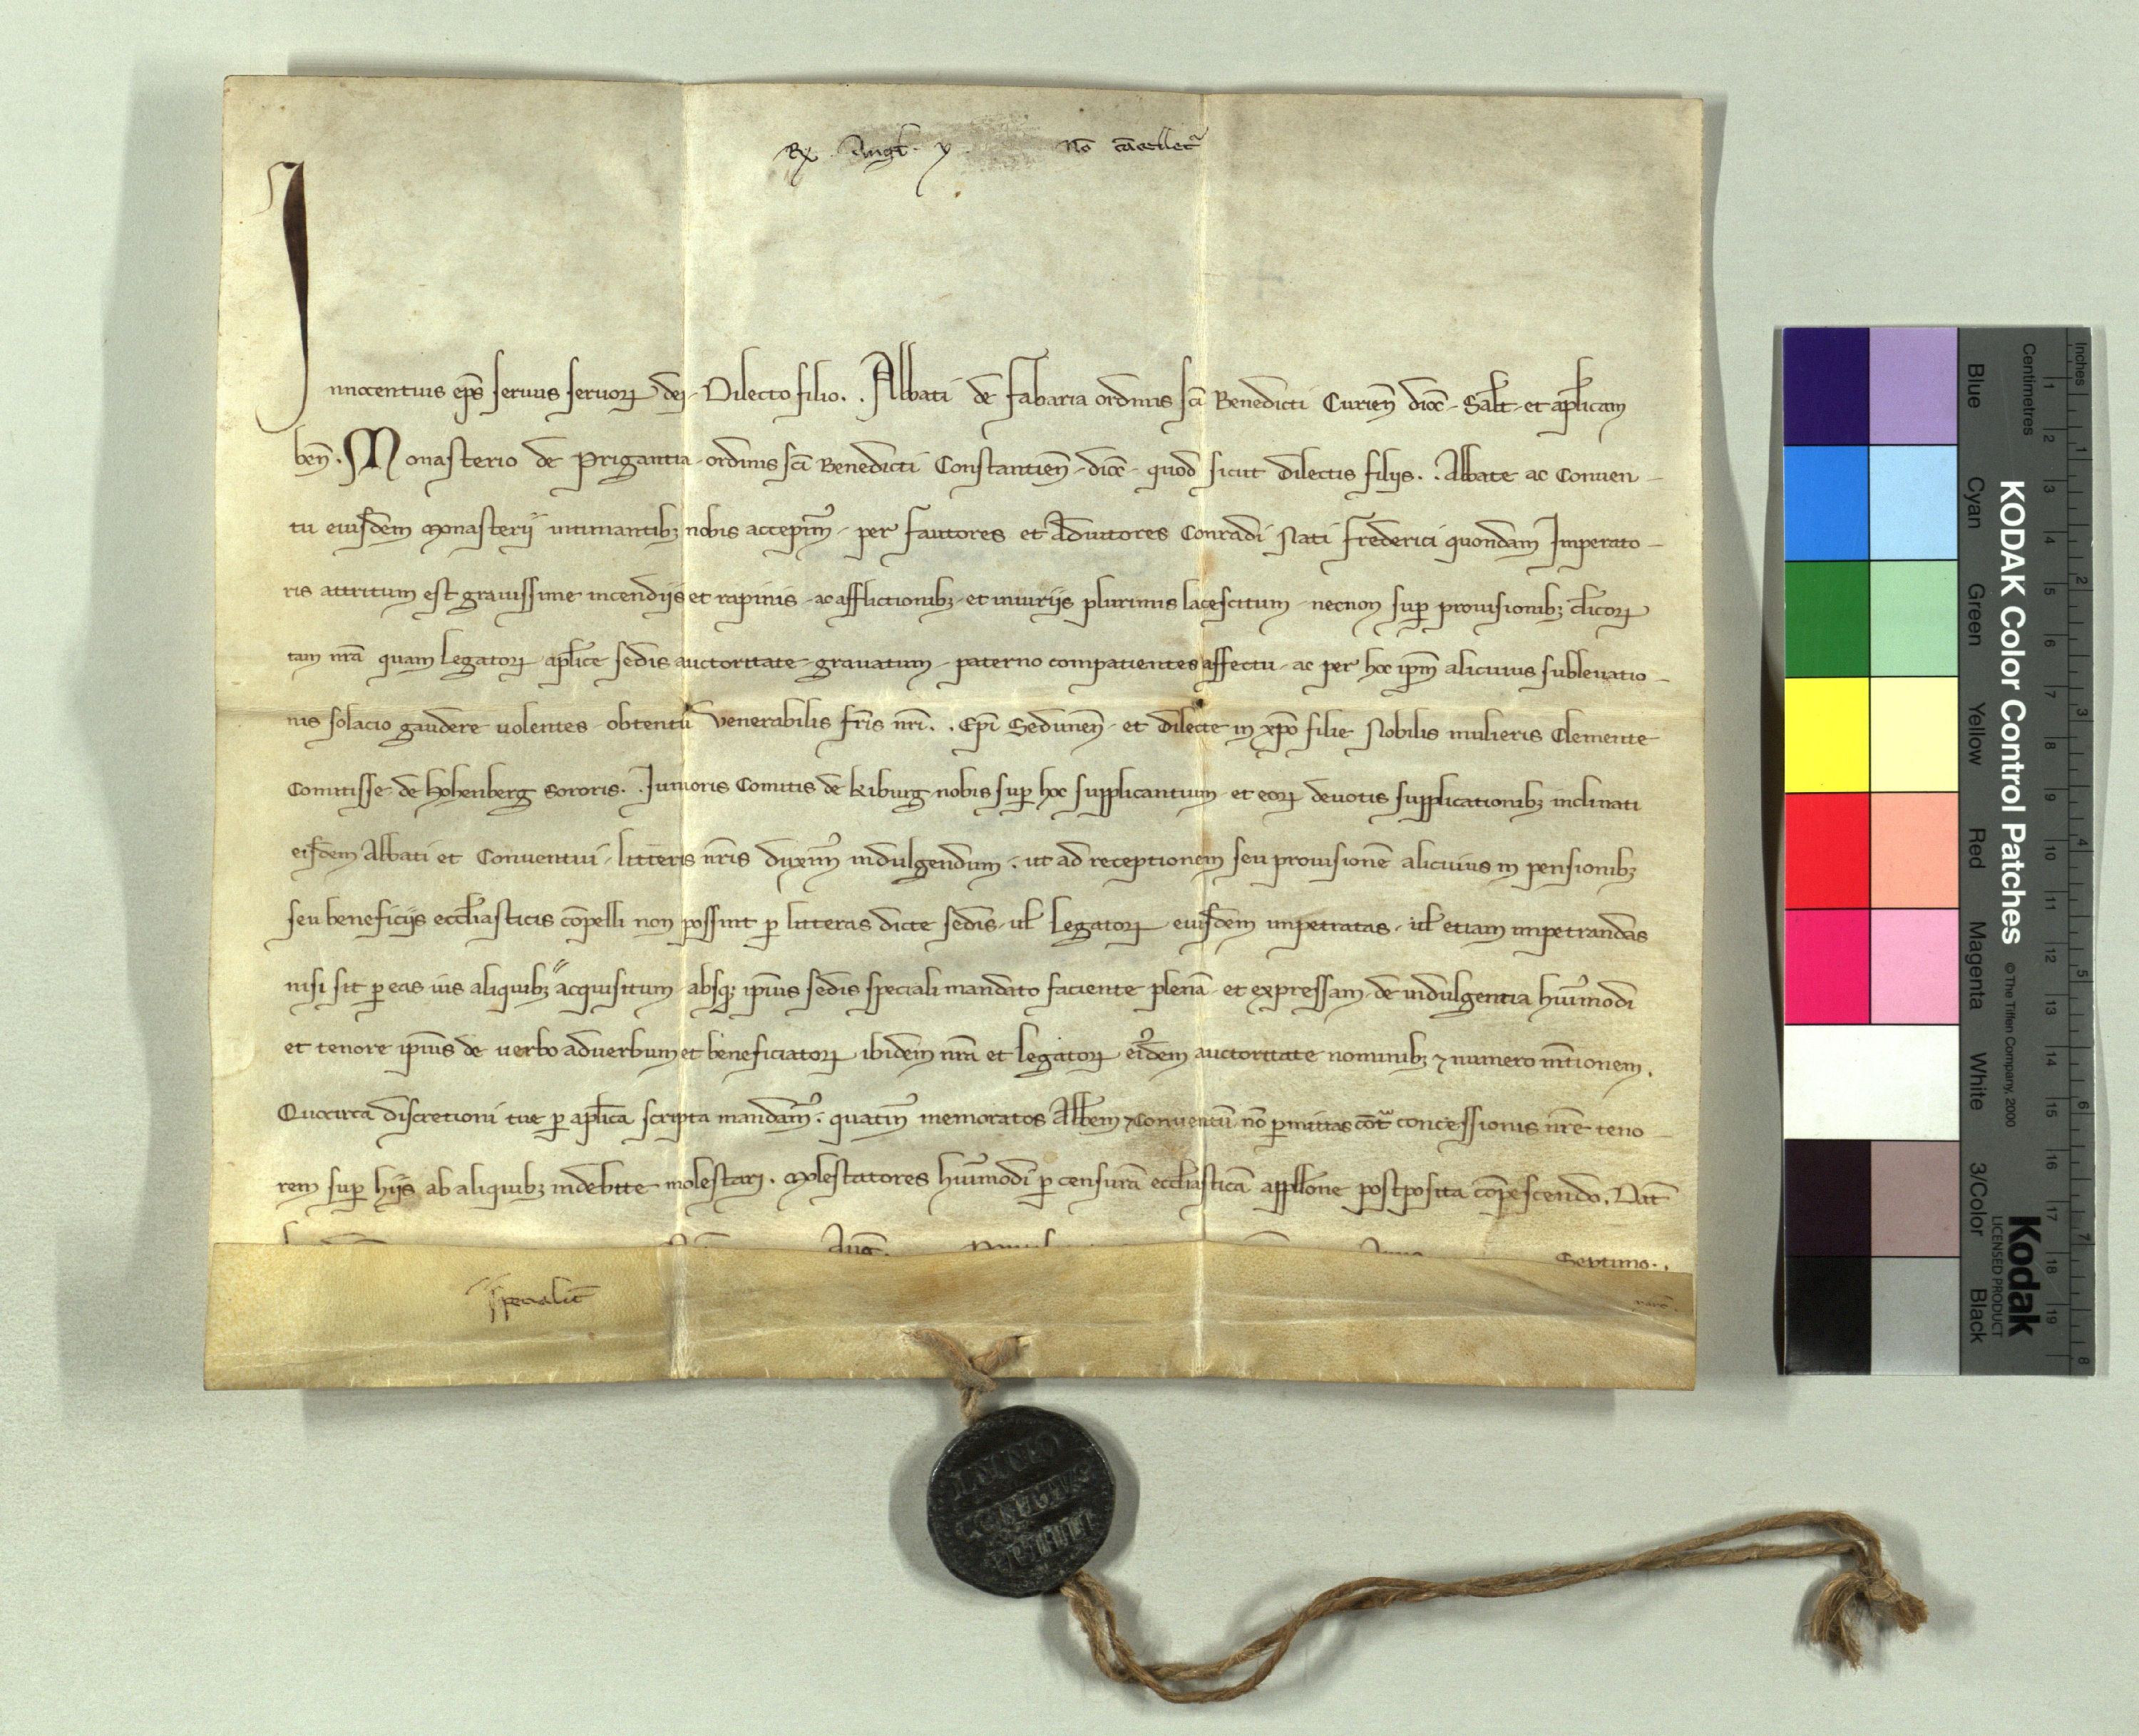 Innocentius ep̄s seruus seruoꝝ dei. Dilecto filio . . Abbati de Fabaria ordinis sc̄i Benedicti Curien̄ dioc̄. Salt̄. et ap̄licam
ben̄. Monasterio de Prigantia ordinis sc̄i Benedicti Constantien̄. dioc̄. quod sicut dilectis filijs . . Abbate ac Conuen-
tu eiusdem Monasterij intimantibꝫ nobis accepim᷒. per fautores et Adiutores Conradi Nati Frederici quondam Imperato-
ris attritum est grauissime incendijs et rapinis. ac afflictionibꝫ. et iniurijs plurimis lacescitum. necnon sup̄ prouisionibꝫ cl̄icoꝝ
tam nr̄a quam Legatoꝝ ap̄lice sedis auctoritate grauatum. paterno compatientes affectu. ac per hoc ip̄m alicuius subleuatio-
nis solacio gaudere uolentes. obtentu Venerabilis fr̄is nr̄i . . Ep̄i Sedunen̄. et dilecte in xp̄o filie Nobilis mulieris Clemente
Comitisse de Hohenberg Sororis . . Iunioris Comitis de Kiburg nobis sup̄ hoc supplicantium. et eoꝝ deuotis supplicationibꝫ inclinati
eisdem Abbati et Conuentui. litteris nr̄is duxim᷒ indulgendum. ut ad receptionem seu prouisionē alicuius in pensionibꝫ
seu beneficijs eccl̄iasticis cōpelli non possint ꝑ litteras dicte sedis. ul̄ Legatoꝝ eiusdem impetratas. ul̄ etiam impetrandas
nisi sit ꝑ eas ius aliquibꝫ acquisitum. absqꝫ ip̄ius sedis speciali mandato faciente plenā. et expressam. de indulgentia hui᷒modi
et tenore ip̄ius de uerbo aduerbum et beneficiatoꝝ ibidem nr̄a et legatoꝝ ei᷒dem auctoritate nominibꝫ ⁊ numero mn̄tionem.
Quocirca discretioni tue ꝑ ap̄lica scripta mandam᷒. quatin᷒ memoratos Abb̄em ⁊ Conuentū nō ꝑmittas cōt̃ concessionis nr̄e teno-
rem sup̄ hijs ab aliquibꝫ indebite molestari. Molestatores hui᷒modi ꝑ censurā eccl̄iasticā appell̄one postposita cōpescendo. Dat̄
Auḡ.
Septimo . .
Specialit̄
KODAK Color Control Patches
© The Tiffen Company, 2000
Kodak
LICENSED PRODUCT
Inches 1 2 3 4 5 6 7 8
Centimetres 1 2 3 4 5 6 7 8 9 10 11 12 13 14 15 16 17 18 19
Blue Cyan Green Yellow Red Magenta White 3/Color Black